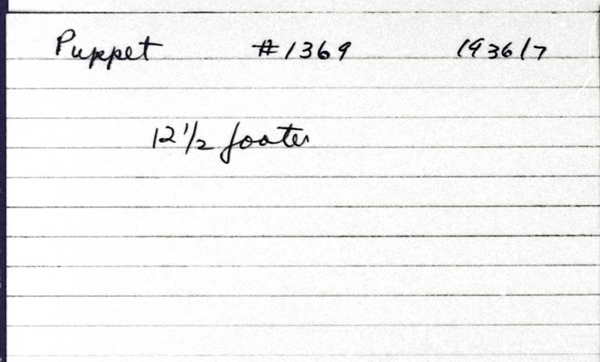 Puppet #1369 1936/7
12 1/2 footer